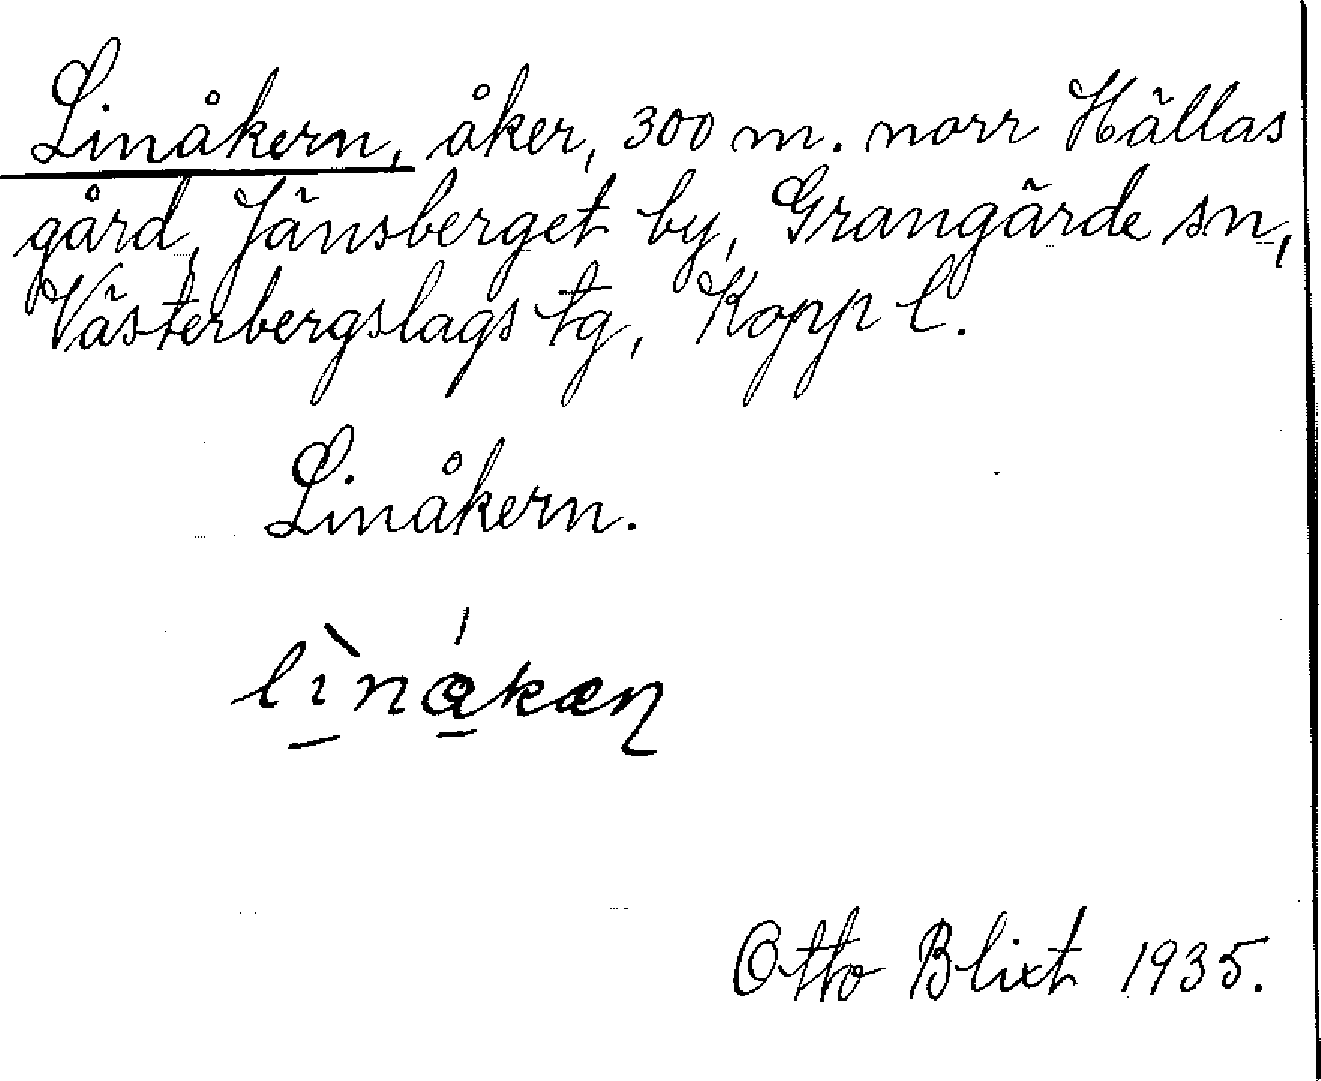 Linåkern, åker, 300 m. norr Hällas
gård, Jänsberget by, Grangärde sn,
Västerbergslags tg, Kopp l.
Linåkern.
lì̱nǻ̱kæɳ
Otto Blixt 1935.